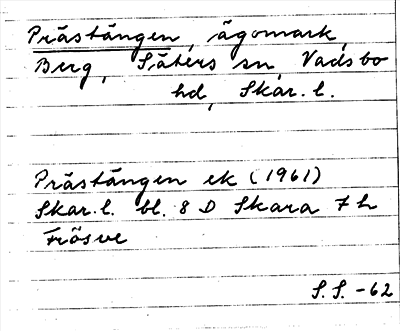 Prästängen, ägomark,
Berg, Säters sn, Vadsbo
hd, Skar. l.
Prästängen ek (1961)
Skar. l. bl. 8 D Skara 7 h
Frösve
S. S. -62